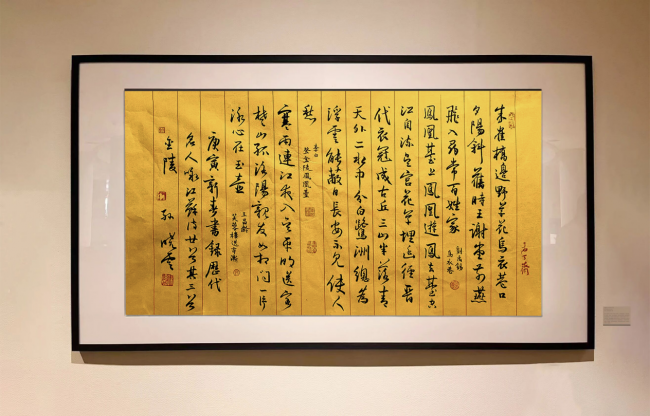 朱雀橋邊野草花烏衣巷口
夕陽斜舊時王謝堂前燕
飛入尋常百姓家
劉禹錫
烏衣巷
鳳凰臺上鳳凰遊鳳去臺空
江自流吳宮花草埋幽徑晉
代衣冠成古丘三山半落青
天外二水中分白鷺洲總為
浮雲能蔽日長安不見使人
愁
李白
登金陵鳳凰臺
寒雨連江夜入吳平明送客
楚山孤洛陽親友如相問一片
冰心在玉壺
王昌齡
芙蓉樓送辛漸
庚寅新春書錄歷代
名人咏江蘇詩廿首其三首
金陵 孫曉雲